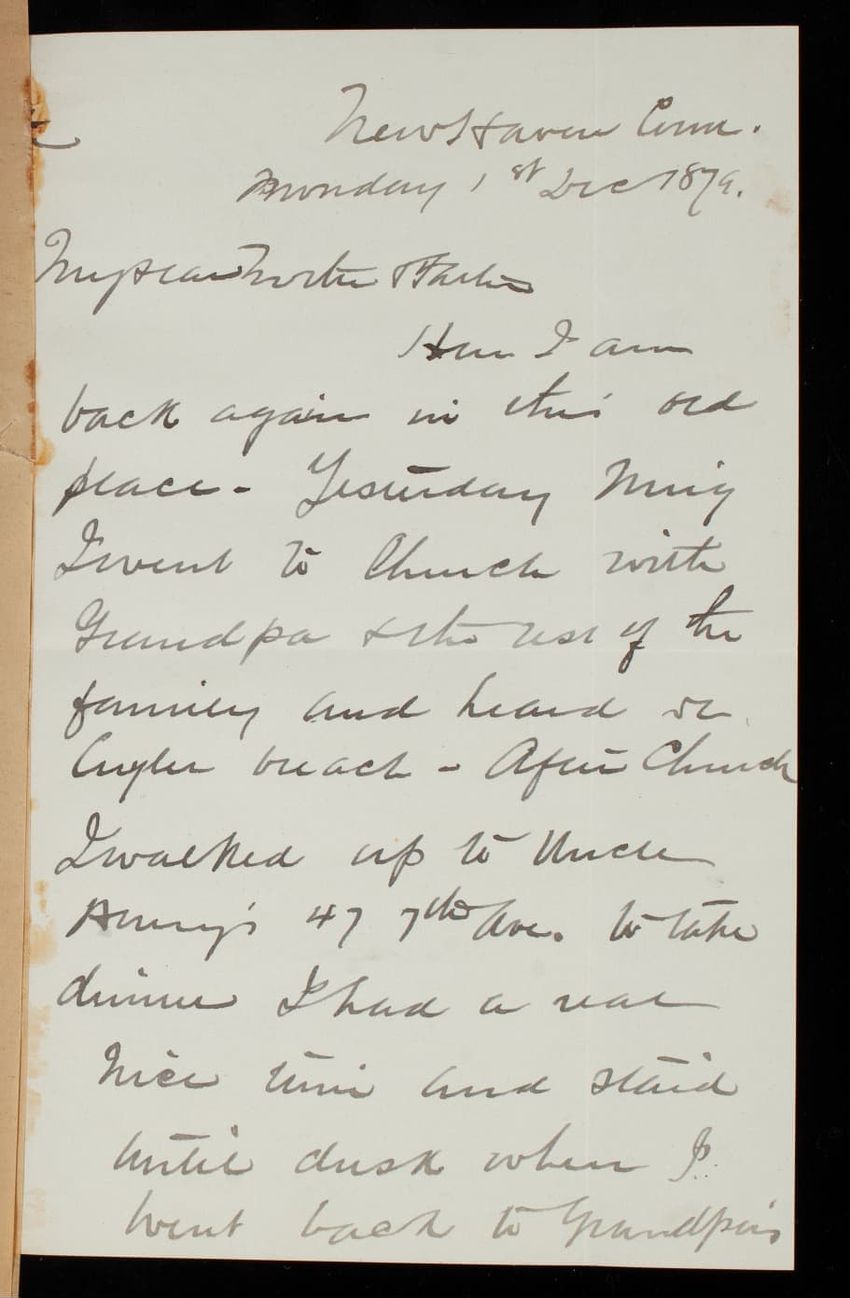 New Haven Conn.
Monday 1st Dec 1879.
My dear Mother & Father
Here I am
back again in this old
place - Yesterday Mng
I went to Church with
Grandpa & the rest of the
family and heard Dr.
Cuyler preach - After Church
I walked up to Uncle
Henry's 47 7th Ave. to take
dinner I had a real
nice time and staid
until dusk when I
went back to Grandpa's